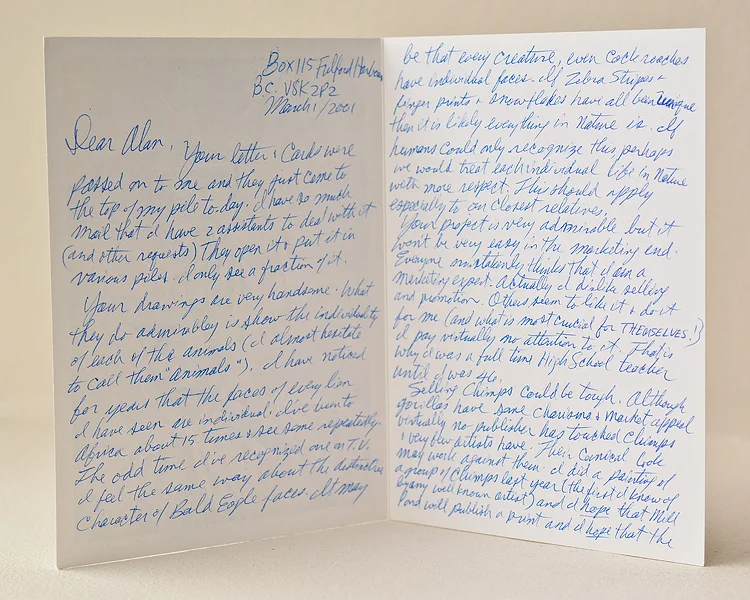 Box 115 Fulford Harbour
B.C. V8K 2P2
March 1/2001
Dear Alan, Your letter & Cards were
passed on to me and they just came to
the top of my pile to-day. I have so much
mail that I have 2 assistants to deal with it
(and other requests) They open it & put it in
various piles. I only see a fraction of it.
Your drawings are very handsome. What
they do admirabley is show the individuality
of each of the animals (I almost hesitate
to call them "animals"). I have noticed
for years that the faces of every lion
I have seen are individual. I've been to
Africa about 15 times & see some repeatedly.
The odd time I've recognized one on T.V.
I feel the same way about the distinctive
character of Bald Eagle faces. It may
be that every creature, even Cockroaches
have individual faces. If Zebra Stripes &
finger prints & snowflakes have all been unique
then it is likely everything in Nature is. If
humans could only recognize this perhaps
we would treat each individual life in Nature
with more respect. This should apply
especially to our closest relatives.
Your project is very admirable but it
won't be very easy in the marketing end.
Everyone mistakenly thinks that I am a
marketing expert. Actually I dislike selling
and promotion. Others seem to like it & do it
for me (and what is most crucial for THEMSELVES!)
I pay virtually no attention to it. That is
why I was a full time High School teacher
until I was 46.
Selling Chimps could be tough. Although
gorillas have some charisma & market appeal
virtually no publisher has touched chimps
& very few artists have. Their comical look
may work against them. I did a painting of
a group of Chimps last year (the first I know of
by any well known artist) and I hope that Mill
Pond will publish a print and I hope that the